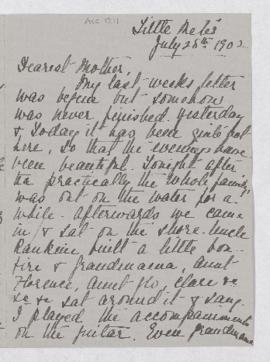 Acc 1211
Little Metis
July 25th 1902
Dearest Mother,
My last weeks letter
was begun but somehow
was never finished. Yesterday
& today it has been quite hot
here, so that the evenings have
been beautiful. Tonight after
tea practically the whole family
was out on the water for a
while. afterwards we came
in & sat on the shore. Uncle
Rankine built a little bon-
fire & Grandmama, Aunt
Florence, Aunt Flo, Clare &c
&c & sat around it & sang.
I played the accompaniments
on the guitar. Even Grandmama